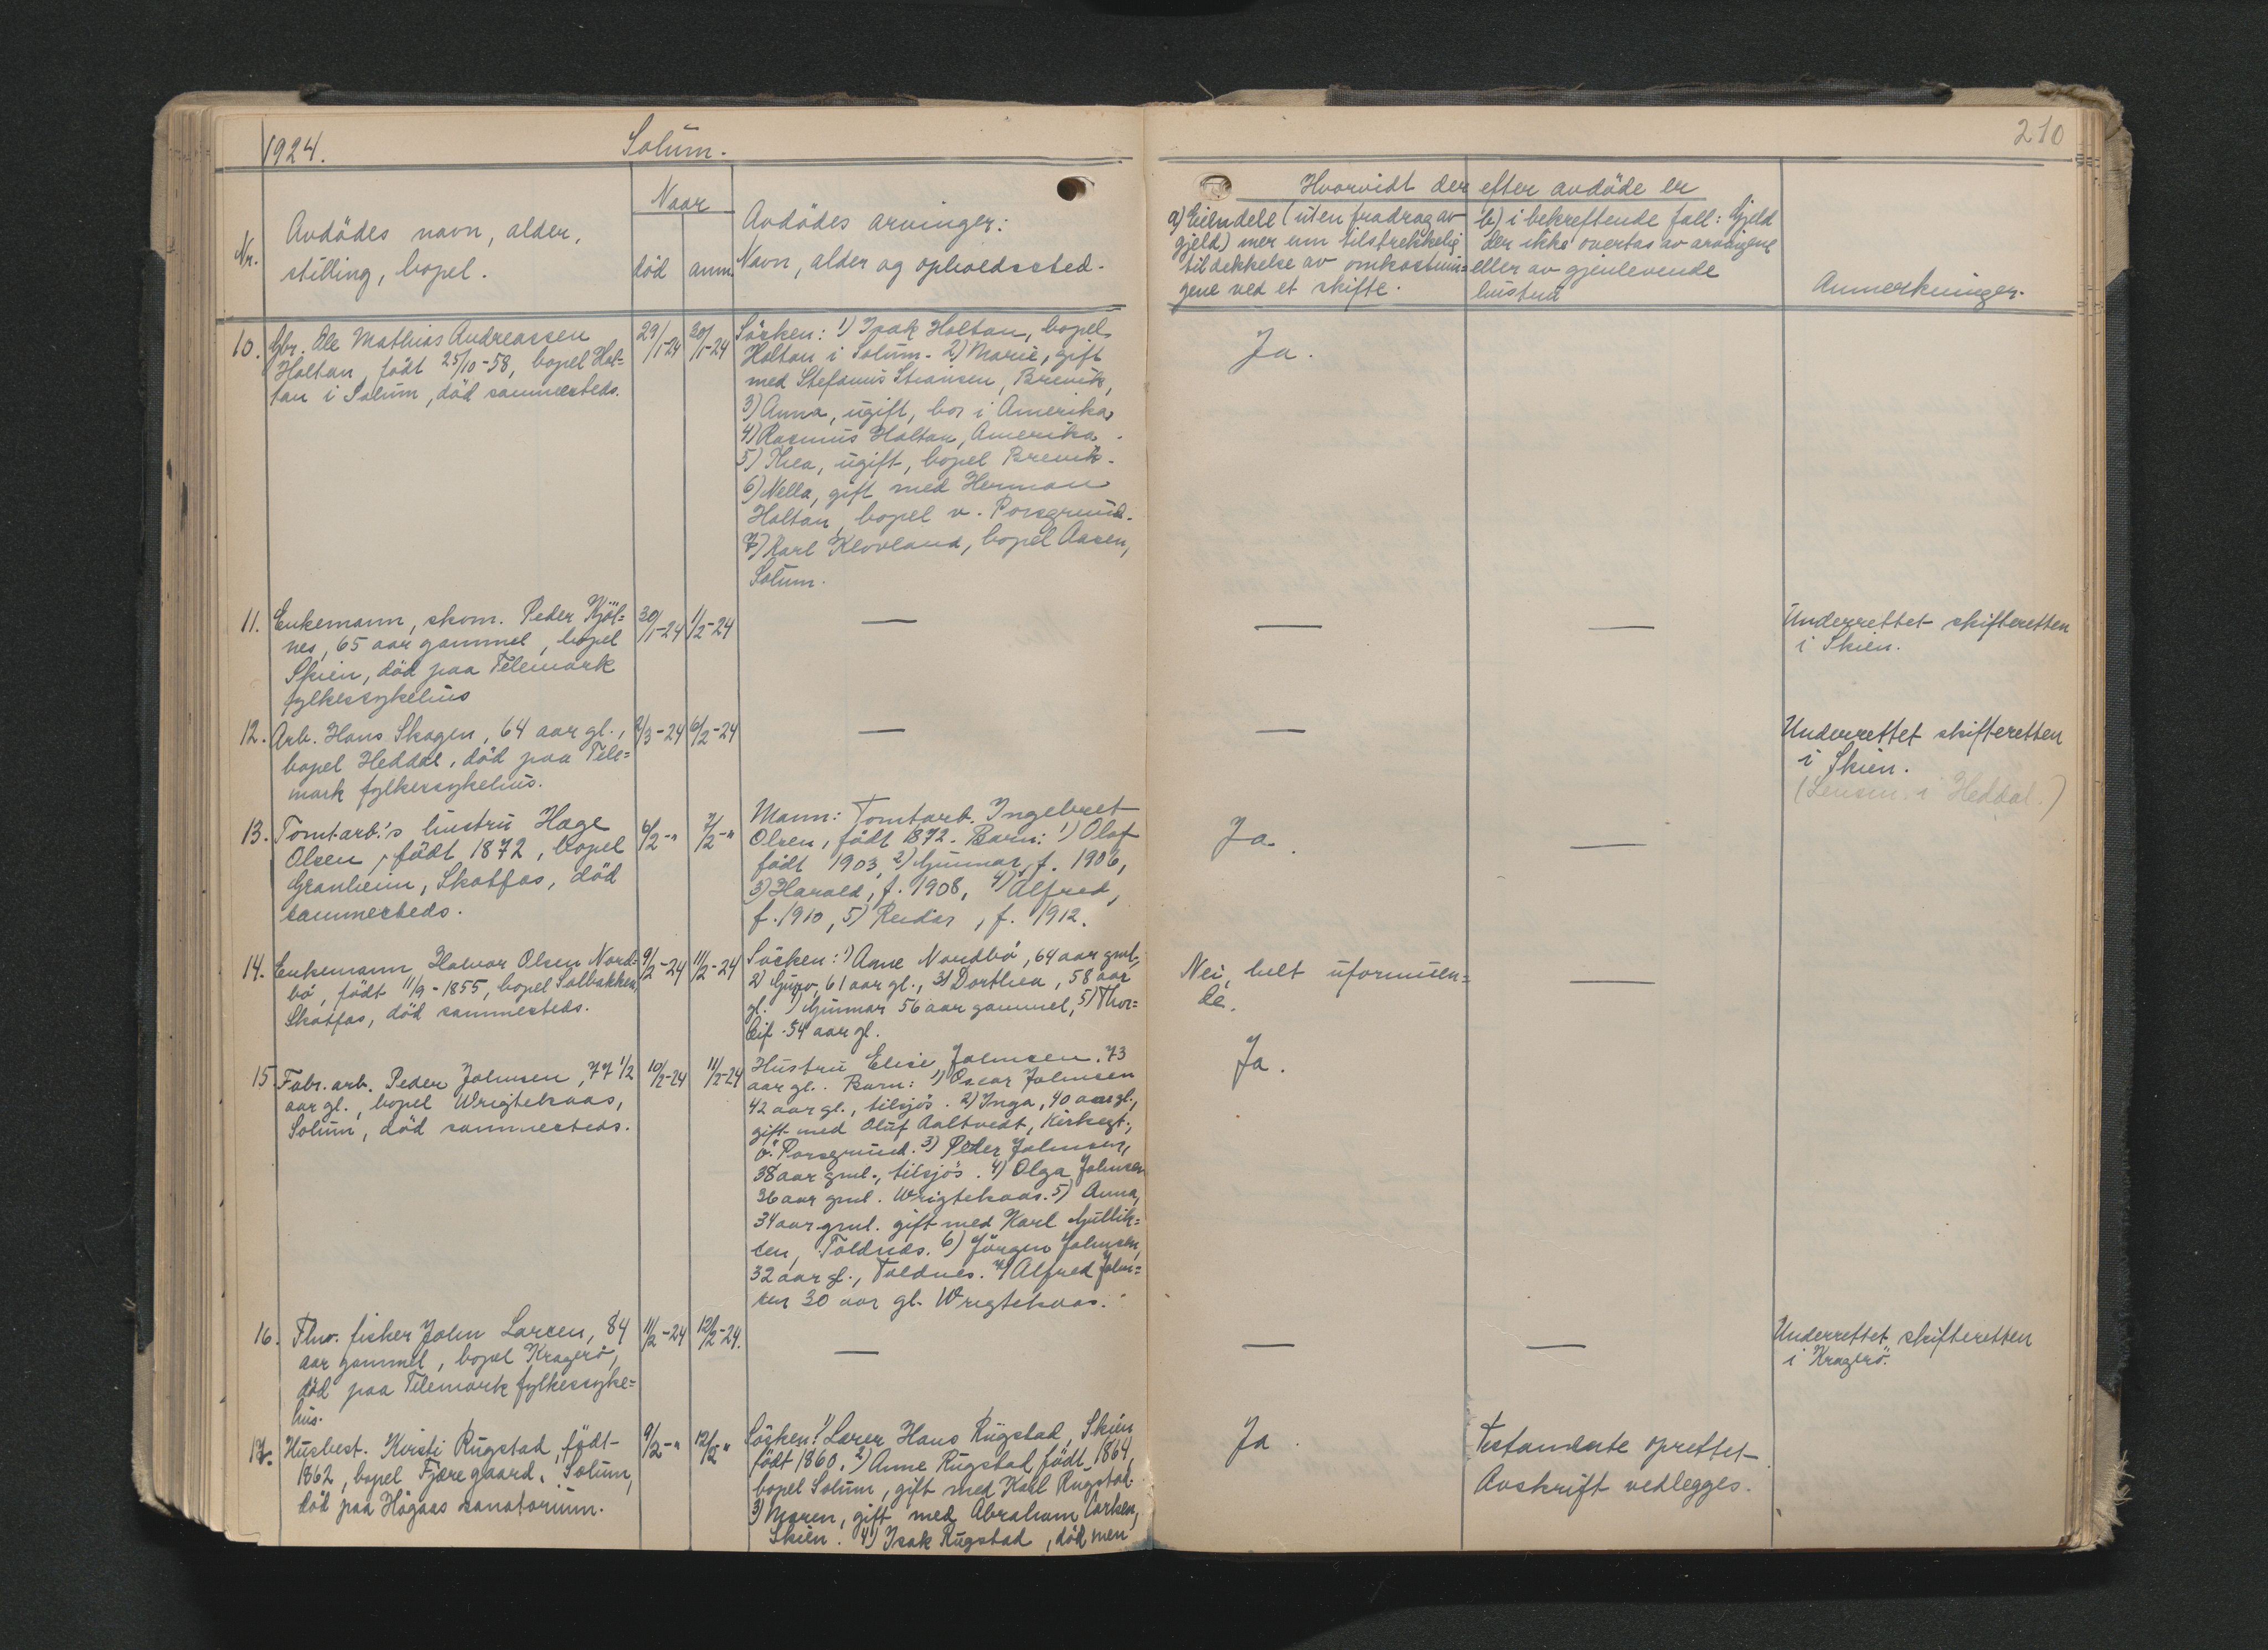 1924.
Solum.
210
Nr.
Avdödes navn, alder,
stilling, bopel.
Naar
död
anm.
Avdödes arvinger:
Navn, alder og opholdssted.
Hvorvidt der efter avdöde er
a) Eiendele (uten fradrag av
gjeld) mer enn tilstrekkelig
til dekkelse av omkostnin=
gene ved et skifte.
b) i bekreftende fall: Gjeld
der ikke overtas av arvingene
eller av gjenlevende
hustru
Anmerkninger.
10. Gbr. Ole Mathias Andreassen
Holtan, född 25/10-58, bopel Hol=
tan i Solum, död sammesteds.
29/1-24
30/1-24
Söcken: 1) Isak Holtan, bopel
Holtan i Solum. 2) Marie, gift
med Stefanus Stiansen, Brevik,
3) Anna, ugift, bor i Amerika,
4) Rasmus Holtan, Amerika.
5) Thea, ugift, bopel Brevik.
6) Nella, gift med Herman
Holtan, bopel v. Porsgrund.
7) Karl Klovland, bopel Aasen,
Solum.
Ja.
11. Enkemann, skom. Peder Kjöl=
nes, 65 aar gammel, bopel
Skien, död paa Telemark
fylkessykehus
30/1-24
1/2-24
—
—
—
Underrettet skifteretten
i Skien.
12. Arb. Hans Skogen, 64 aar gl.,
bopel Heddal, död paa Tele=
mark fylkessykehus.
2/3-24
6/2-24
—
—
Underrettet skifteretten
i Skien.
(Lensm. i Heddal.)
13. Tomtarb.'s hustru Hage
Olsen, födt 1872, bopel
Granheim, Skotfos, död
sammesteds.
6/2-"
7/2-"
Mann: Tomtarb. Ingebret
Olsen, födt 1872. Barn: 1) Olaf
födt 1903, 2) Gunnar, f. 1906,
3) Harald, f. 1908, 4) Alfred,
f. 1910, 5) Reidar, f. 1912.
Ja.
—
14. Enkemann Halvor Olsen Nord=
bö, födt 11/9-1855, bopel Solbakken,
Skotfos, död sammesteds.
9/2-24
11/2-24
Söcken: 1) Anne Nordbö, 64 aar gml.,
2) Guro, 61 aar gl., 3) Dorthea, 58 aar
gl. 4) Gunnar 56 aar gammel, 5) Thor=
leif 54 aar gl.
Nei, helt uformuen=
de.
—
15 Fabr. arb. Peder Johnsen, 77 1/2
aar gl., bopel Wrigtekaas,
Solum, död sammesteds.
10/2-24
11/2-24
Hustru Elise Johnsen. 73
aar gl. Barn: 1) Oscar Johnsen
42 aar gl., tilsjös. 2) Inga, 40 aar gl.,
gift med Oluf Aaltvedt, Kirkegt.,
ö. Porsgrund. 3) Peder Johnsen,
38 aar gml., tilsjös. 4) Olga Johnsen
36 aar gml. Wrigtekaas. 5) Anna,
34 aar gml. gift med Karl Gullik=
sen, Toldnes. 6) Jörgen Johnsen,
32 aar gl., Toldnes. 7) Alfred John=
sen 30 aar gl. Wrigtekaas.
Ja.
16. Fhv. fisker John Larsen, 84
aar gammel, bopel Kragerö,
död paa Telemark fylkessyke=
hus.
11/2-24
12/2-24.
—
—
—
Underrettet skifteretten
i Kragerö.
17. Husbest. Kirsti Rugstad, födt
1862, bopel Fjæregaard, Solum,
död paa Högaas sanatorium.
9/2-"
12/2 "
Söcken: 1) Lærer Hans Rugstad, Skien
födt 1860. 2) Anne Rugstad, födt 1864,
bopel Solum, gift med Karl Rugstad.
3) Maren, gift med Abraham Carlsen,
Skien. 4) Isak Rugstad, död men
Ja.
Testamente oprettet
Avskrift vedlegges.